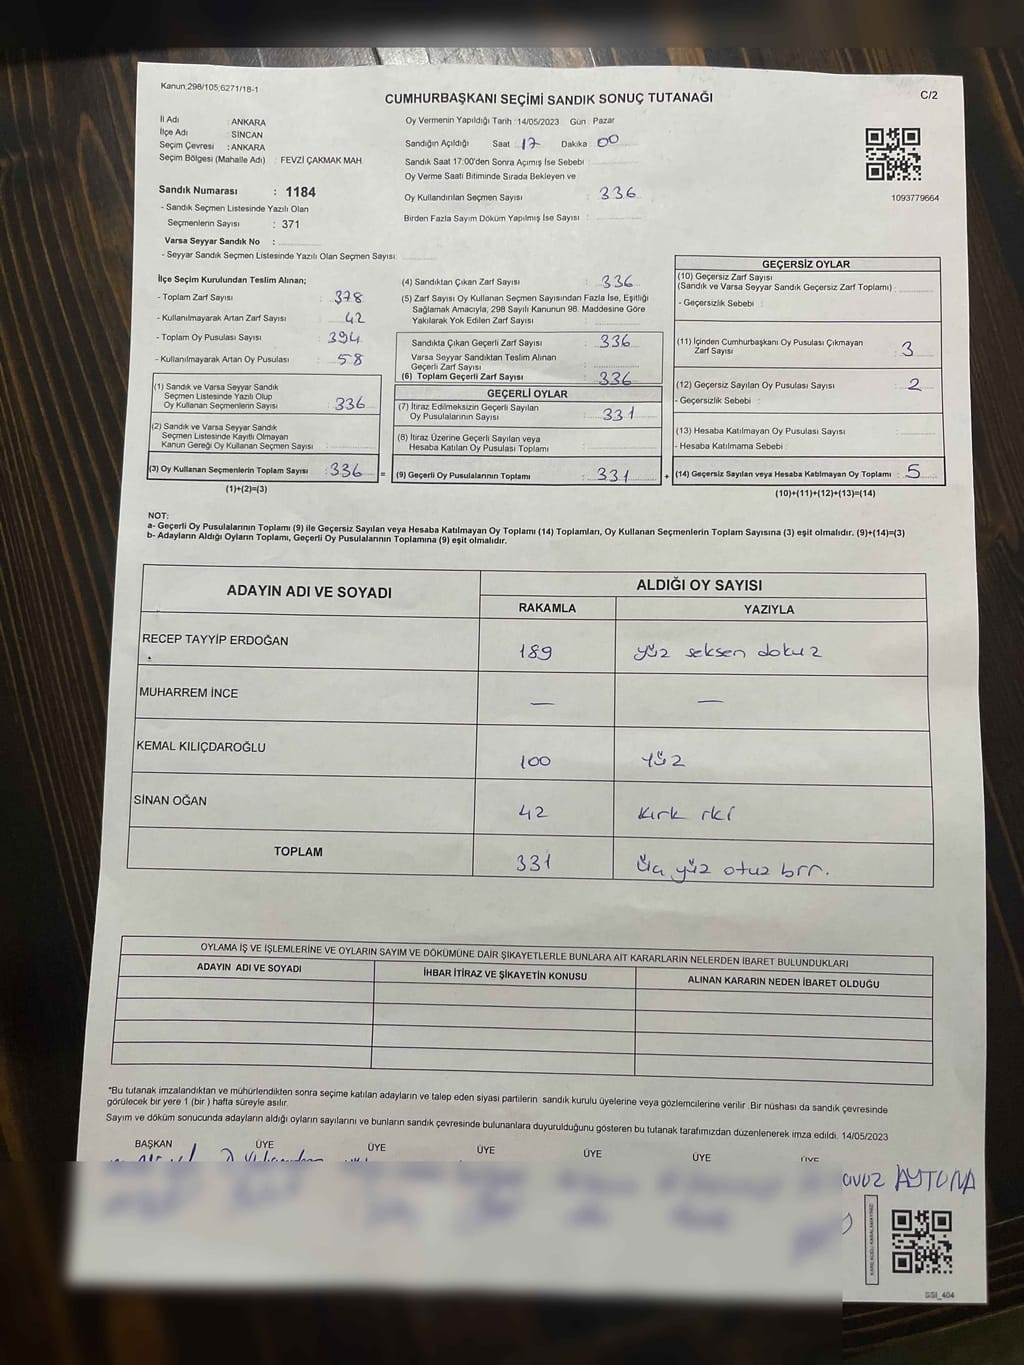 Kanun;298/105,6271/18-1
CUMHURBAŞKANI SEÇİMİ SANDIK SONUÇ TUTANAĞI
C/2
İl Adı : ANKARA
İlçe Adı : SİNCAN
Seçim Çevresi : ANKARA
Seçim Bölgesi (Mahalle Adı) : FEVZİ ÇAKMAK MAH.
Sandık Numarası : 1184
- Sandık Seçmen Listesinde Yazılı Olan
Seçmenlerin Sayısı : 371
Varsa Seyyar Sandık No :
- Seyyar Sandık Seçmen Listesinde Yazılı Olan Seçmen Sayısı:
Oy Vermenin Yapıldığı Tarih : 14/05/2023 Gün : Pazar
Sandığın Açıldığı Saat : 17 Dakika : 00
Sandık Saat 17:00'den Sonra Açımış İse Sebebi :
Oy Verme Saati Bitiminde Sırada Bekleyen ve
Oy Kullandırılan Seçmen Sayısı : 336
Birden Fazla Sayım Döküm Yapılmış İse Sayısı :
1093779664
İlçe Seçim Kurulundan Teslim Alınan;
- Toplam Zarf Sayısı : 378
- Kullanılmayarak Artan Zarf Sayısı : 42
- Toplam Oy Pusulası Sayısı : 394
- Kullanılmayarak Artan Oy Pusulası : 58
(1) Sandık ve Varsa Seyyar Sandık
Seçmen Listesinde Yazılı Olup
Oy Kullanan Seçmenlerin Sayısı : 336
(2) Sandık ve Varsa Seyyar Sandık
Seçmen Listesinde Kayıtlı Olmayan
Kanun Gereği Oy Kullanan Seçmen Sayısı :
(3) Oy Kullanan Seçmenlerin Toplam Sayısı : 336 =
(1)+(2)=(3)
(4) Sandıktan Çıkan Zarf Sayısı : 336
(5) Zarf Sayısı Oy Kullanan Seçmen Sayısından Fazla İse, Eşitliği
Sağlamak Amacıyla, 298 Sayılı Kanunun 98. Maddesine Göre
Yakılarak Yok Edilen Zarf Sayısı :
Sandıkta Çıkan Geçerli Zarf Sayısı : 336
Varsa Seyyar Sandıktan Teslim Alınan
Geçerli Zarf Sayısı :
(6) Toplam Geçerli Zarf Sayısı : 336
GEÇERLİ OYLAR
(7) İtiraz Edilmeksizin Geçerli Sayılan
Oy Pusulalarının Sayısı : 331
(8) İtiraz Üzerine Geçerli Sayılan veya
Hesaba Katılan Oy Pusulası Toplamı :
(9) Geçerli Oy Pusulalarının Toplamı : 331 +
GEÇERSİZ OYLAR
(10) Geçersiz Zarf Sayısı
(Sandık ve Varsa Seyyar Sandık Geçersiz Zarf Toplamı) :
- Geçersizlik Sebebi :
(11) İçinden Cumhurbaşkanı Oy Pusulası Çıkmayan
Zarf Sayısı : 3
(12) Geçersiz Sayılan Oy Pusulası Sayısı : 2
- Geçersizlik Sebebi :
(13) Hesaba Katılmayan Oy Pusulası Sayısı :
- Hesaba Katılmama Sebebi :
(14) Geçersiz Sayılan veya Hesaba Katılmayan Oy Toplamı : 5
(10)+(11)+(12)+(13)=(14)
NOT:
a- Geçerli Oy Pusulalarının Toplamı (9) ile Geçersiz Sayılan veya Hesaba Katılmayan Oy Toplamı (14) Toplamları, Oy Kullanan Seçmenlerin Toplam Sayısına (3) eşit olmalıdır. (9)+(14)=(3)
b- Adayların Aldığı Oyların Toplamı, Geçerli Oy Pusulalarının Toplamına (9) eşit olmalıdır.
ADAYIN ADI VE SOYADI
ALDIĞI OY SAYISI
RAKAMLA YAZIYLA
RECEP TAYYİP ERDOĞAN 189 yüz seksen dokuz
MUHARREM İNCE — —
KEMAL KILIÇDAROĞLU 100 yüz
SİNAN OĞAN 42 kırk iki
TOPLAM 331 Üç yüz otuz bir.
OYLAMA İŞ VE İŞLEMLERİNE VE OYLARIN SAYIM VE DÖKÜMÜNE DAİR ŞİKAYETLERLE BUNLARA AİT KARARLARIN NELERDEN İBARET BULUNDUKLARI
ADAYIN ADI VE SOYADI İHBAR İTİRAZ VE ŞİKAYETİN KONUSU ALINAN KARARIN NEDEN İBARET OLDUĞU
*Bu tutanak imzalandıktan ve mühürlendikten sonra seçime katılan adayların ve talep eden siyasi partilerin sandık kurulu üyelerine veya gözlemcilerine verilir .Bir nüshası da sandık çevresinde
görülecek bir yere 1 (bir ) hafta süreyle asılır.
Sayım ve döküm sonucunda adayların aldığı oyların sayılarını ve bunların sandık çevresinde bulunanlara duyurulduğunu gösteren bu tutanak tarafımızdan düzenlenerek imza edildi. 14/05/2023
BAŞKAN ÜYE ÜYE ÜYE ÜYE ÜYE ÜYE
AYTUNA
SSI_404